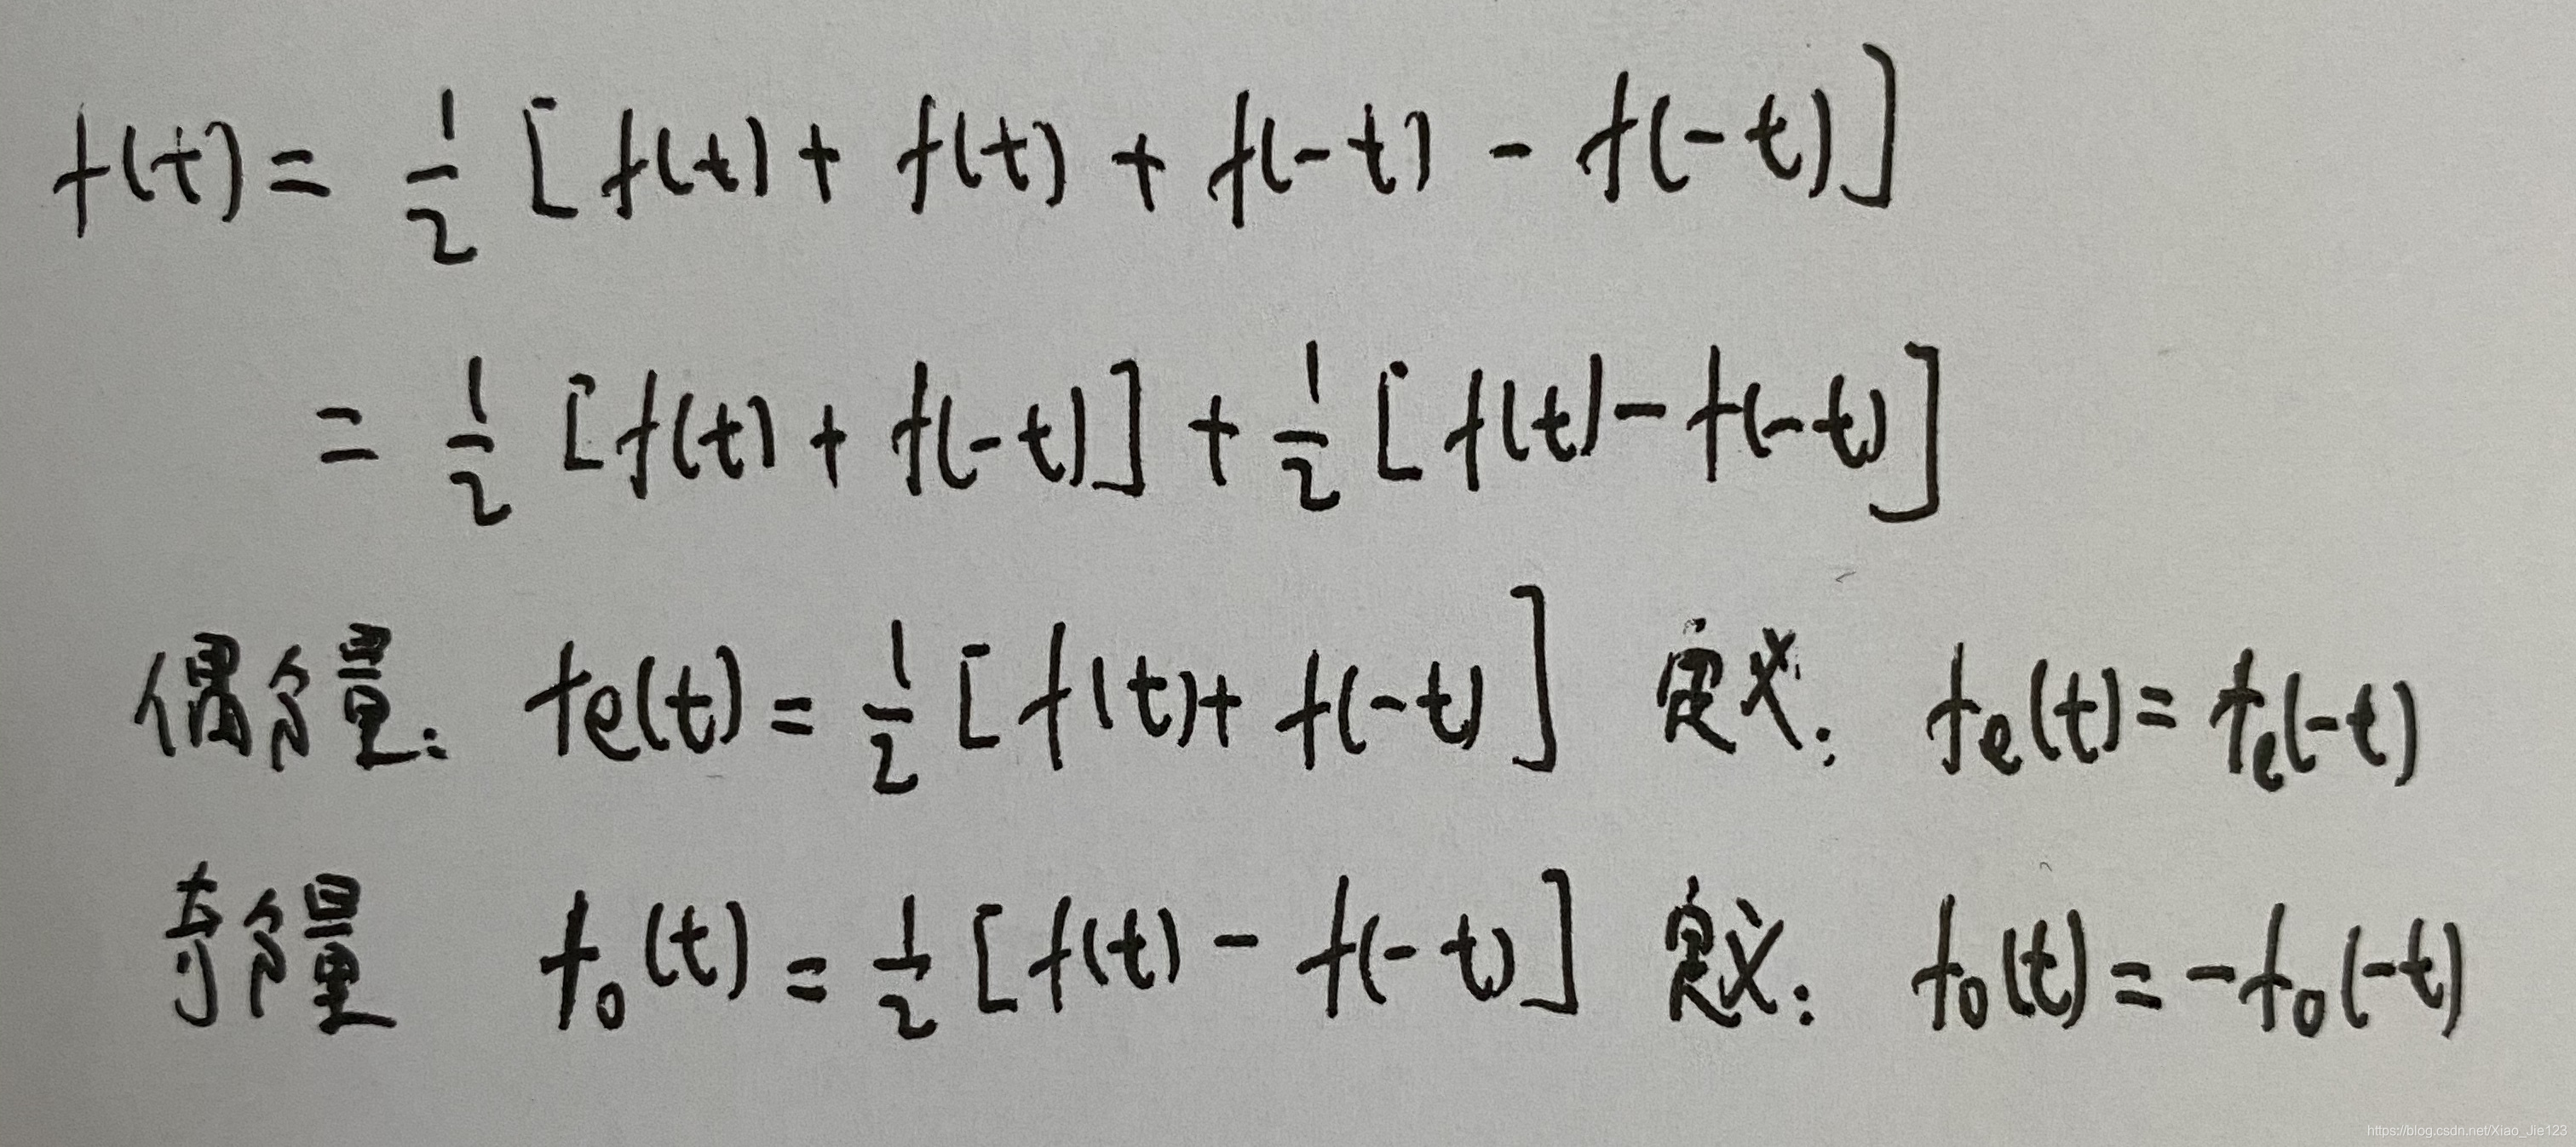 f(t) = 1/2 [f(t) + f(t) + f(-t) - f(-t)]
= 1/2 [f(t) + f(-t)] + 1/2 [f(t) - f(-t)]
偶分量: fe(t) = 1/2 [f(t) + f(-t)] 定义: fe(t) = fe(-t)
奇分量 fo(t) = 1/2 [f(t) - f(-t)] 定义: fo(t) = -fo(-t)
https://blog.csdn.net/Xiao_Jie123